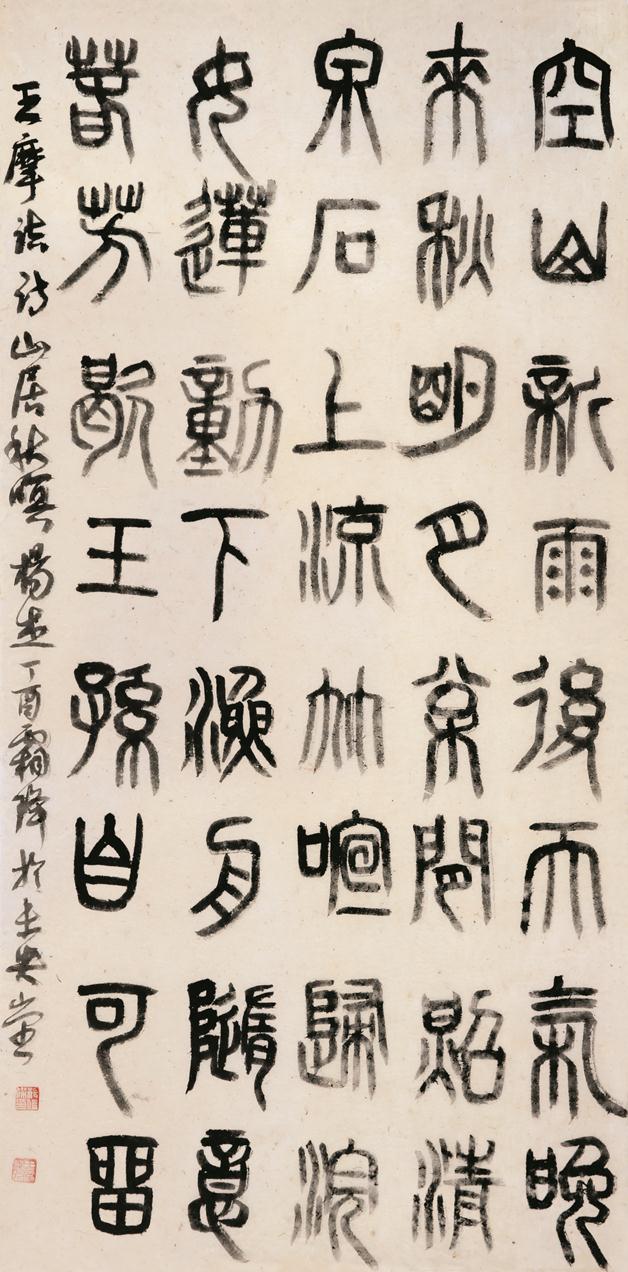 空山新雨後天氣晚
來秋明月松間照清
泉石上流竹喧歸浣
女蓮動下漁舟隨意
春芳歇王孫自可留
王摩詰詩山居秋暝楊丁酉霜降於未央堂